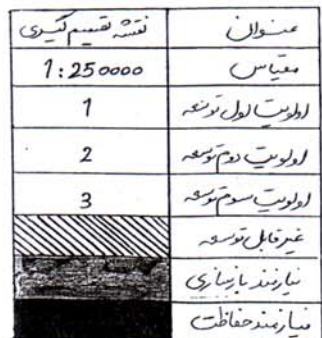 عنوان نقشه تقسیم گیری
مقیاس 1:250000
اولویت اول توسعه 1
اولویت دوم توسعه 2
اولویت سوم توسعه 3
غیرقابل توسعه
نیازمند بازسازی
نیازمند حفاظت